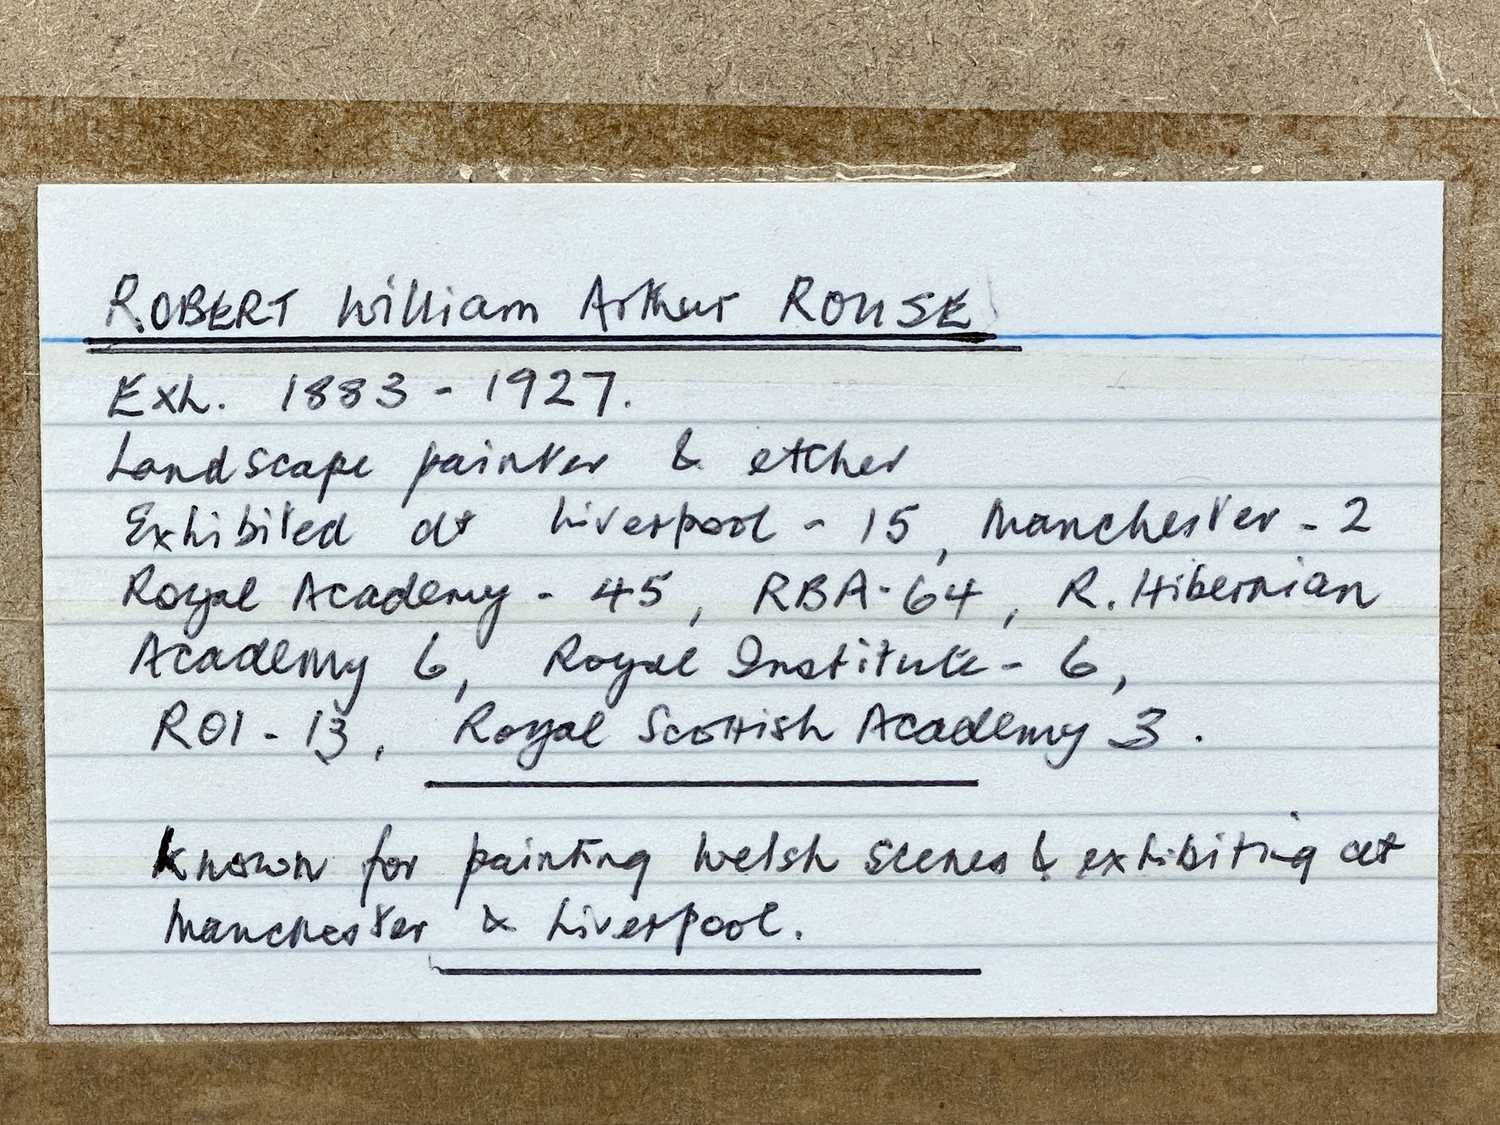 ROBERT William Arthur ROUSE
Exh. 1883 - 1927.
Landscape painter & etcher
Exhibited at Liverpool - 15, Manchester - 2
Royal Academy - 45, RBA - 64, R. Hibernian
Academy 6, Royal Institute - 6,
ROI - 13, Royal Scottish Academy 3.
Known for painting Welsh scenes & exhibiting at
Manchester & Liverpool.